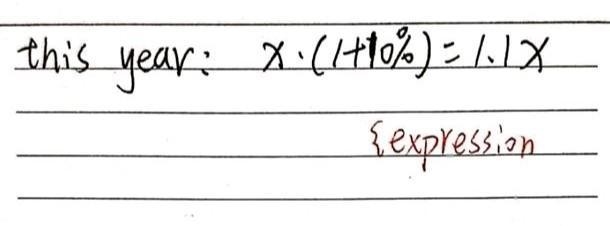 this year: x·(1+10%)=1.1x
{expression